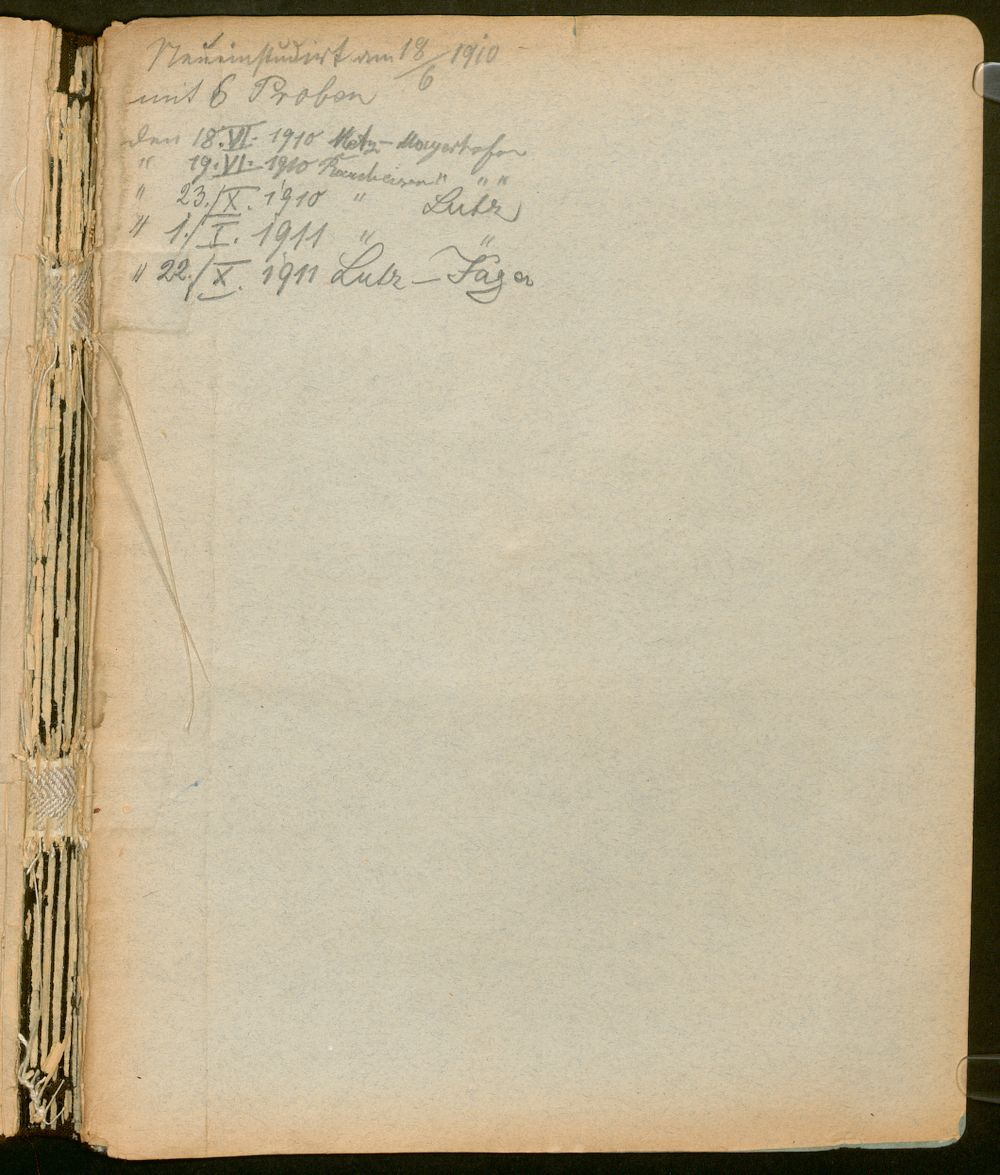 Neueinstudirt am 18/6 1910
mit 6 Proben
den 18. VI. 1910 Metz – Mayerhofer
" 19. VI. 1910 " " "
" 23./X. 1910 " Lutz
" 1./I. 1911 " "
" 22./X. 1911 Lutz – Jäger